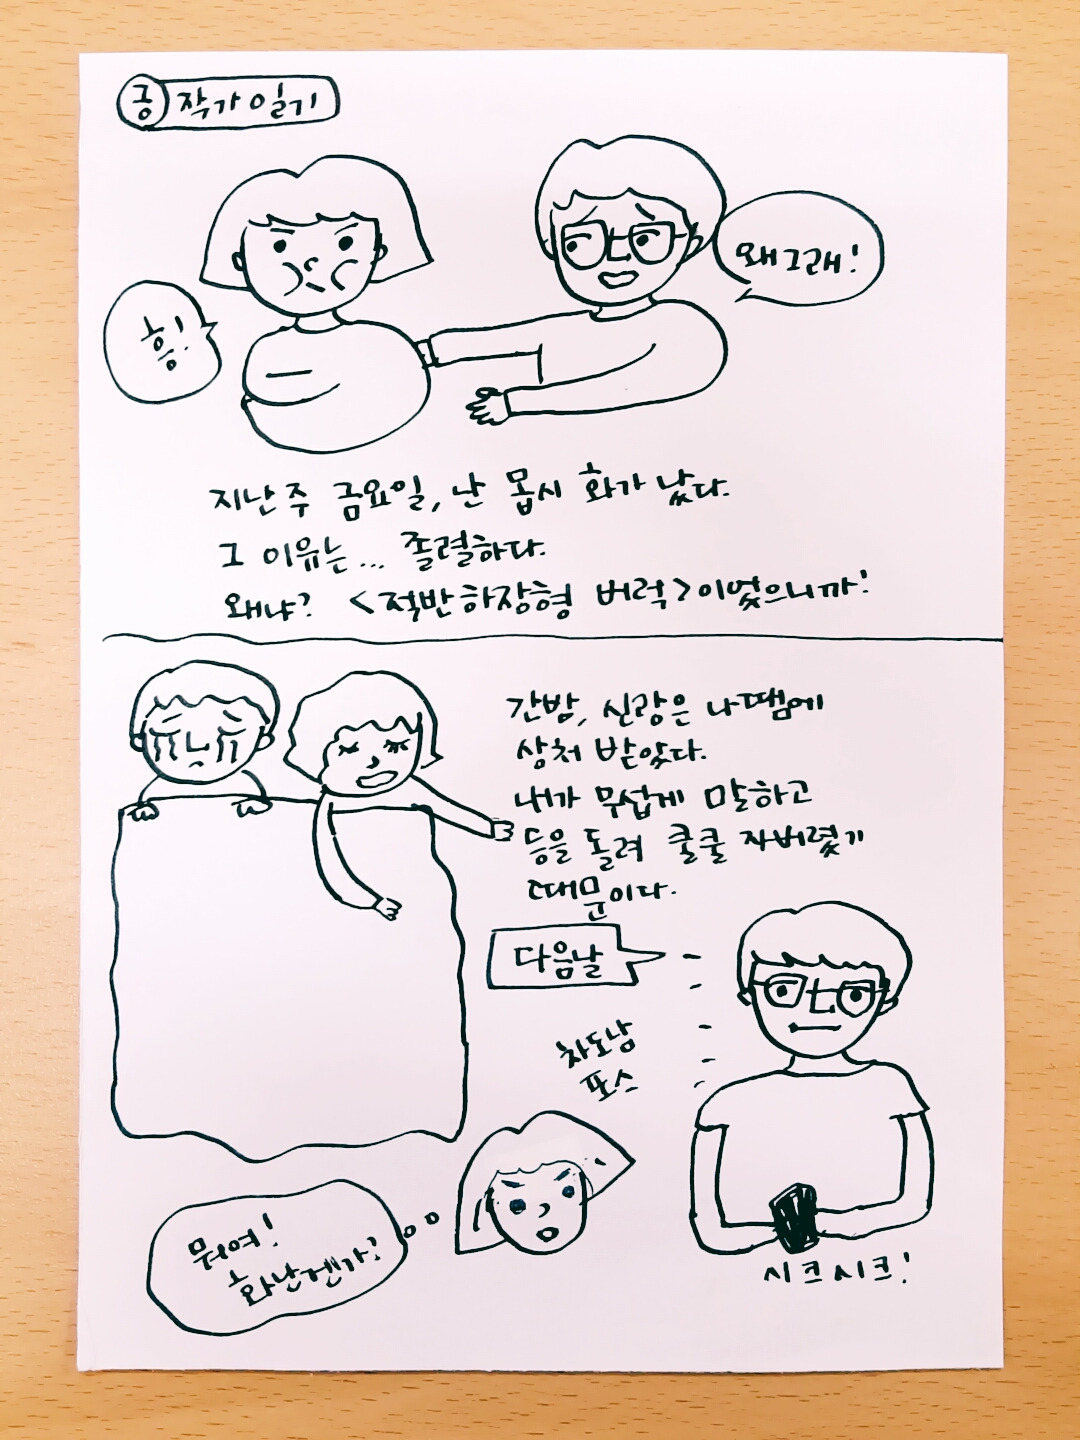 긍 작가일기
흥!
왜그래!
지난주 금요일, 난 몹시 화가 났다.
그 이유는... 졸렬하다.
왜냐? <적반하장형 버럭>이었으니까!
간밤, 신랑은 나땜에
상처 받았다.
내가 무섭게 말하고
등을 돌려 쿨쿨 자버렸기
때문이다.
다음날
차도남
포스
뭐여!
화난겐가?
시크시크!